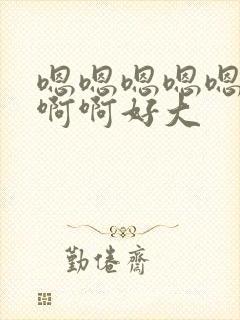 嗯嗯嗯嗯嗯
啊啊好大
勤倦齋